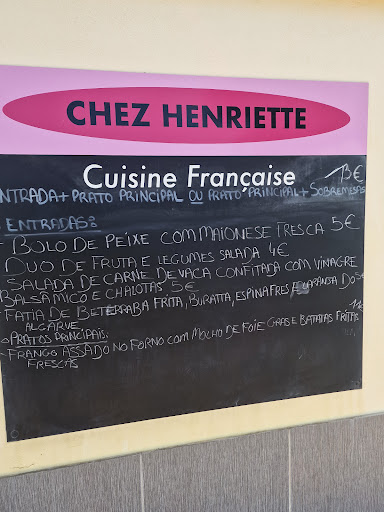 CHEZ HENRIETTE
Cuisine Française
NTRADA + PRATO PRINCIPAL OU PRATO PRINCIPAL + SOBREMESA 13€
ENTRADAS:
- BOLO DE PEIXE COM MAIONESE FRESCA 5€
DUO DE FRUTA E LEGUMES SALADA 4€
SALADA DE CARNE DE VACA CONFITADA COM VINAGRE
BALSAMICO E CHALOTAS 5€
- FATIA DE BETERRABA FRITA, BURATTA, ESPINAFRES E LARANJA DO 5€
ALGARVE
PRATOS PRINCIPAIS:
- FRANGO ASSADO NO FORNO COM MOLHO DE FOIE GRAS E BATATAS FRITAS
FRESCAS